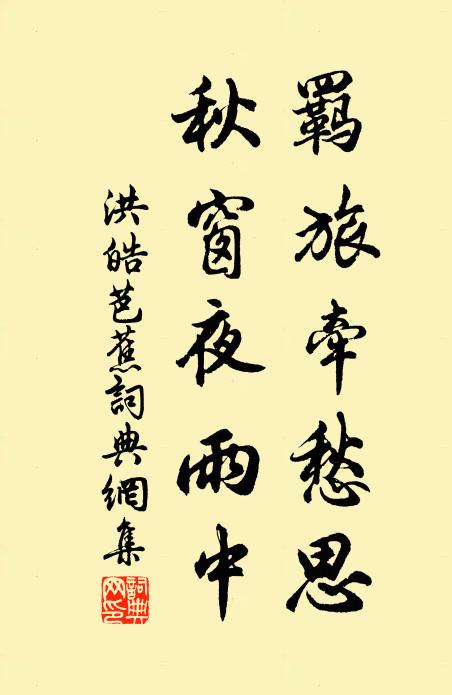 羈旅牽愁思
秋窗夜雨中
洪皓芭蕉詞典網集
詞典網印